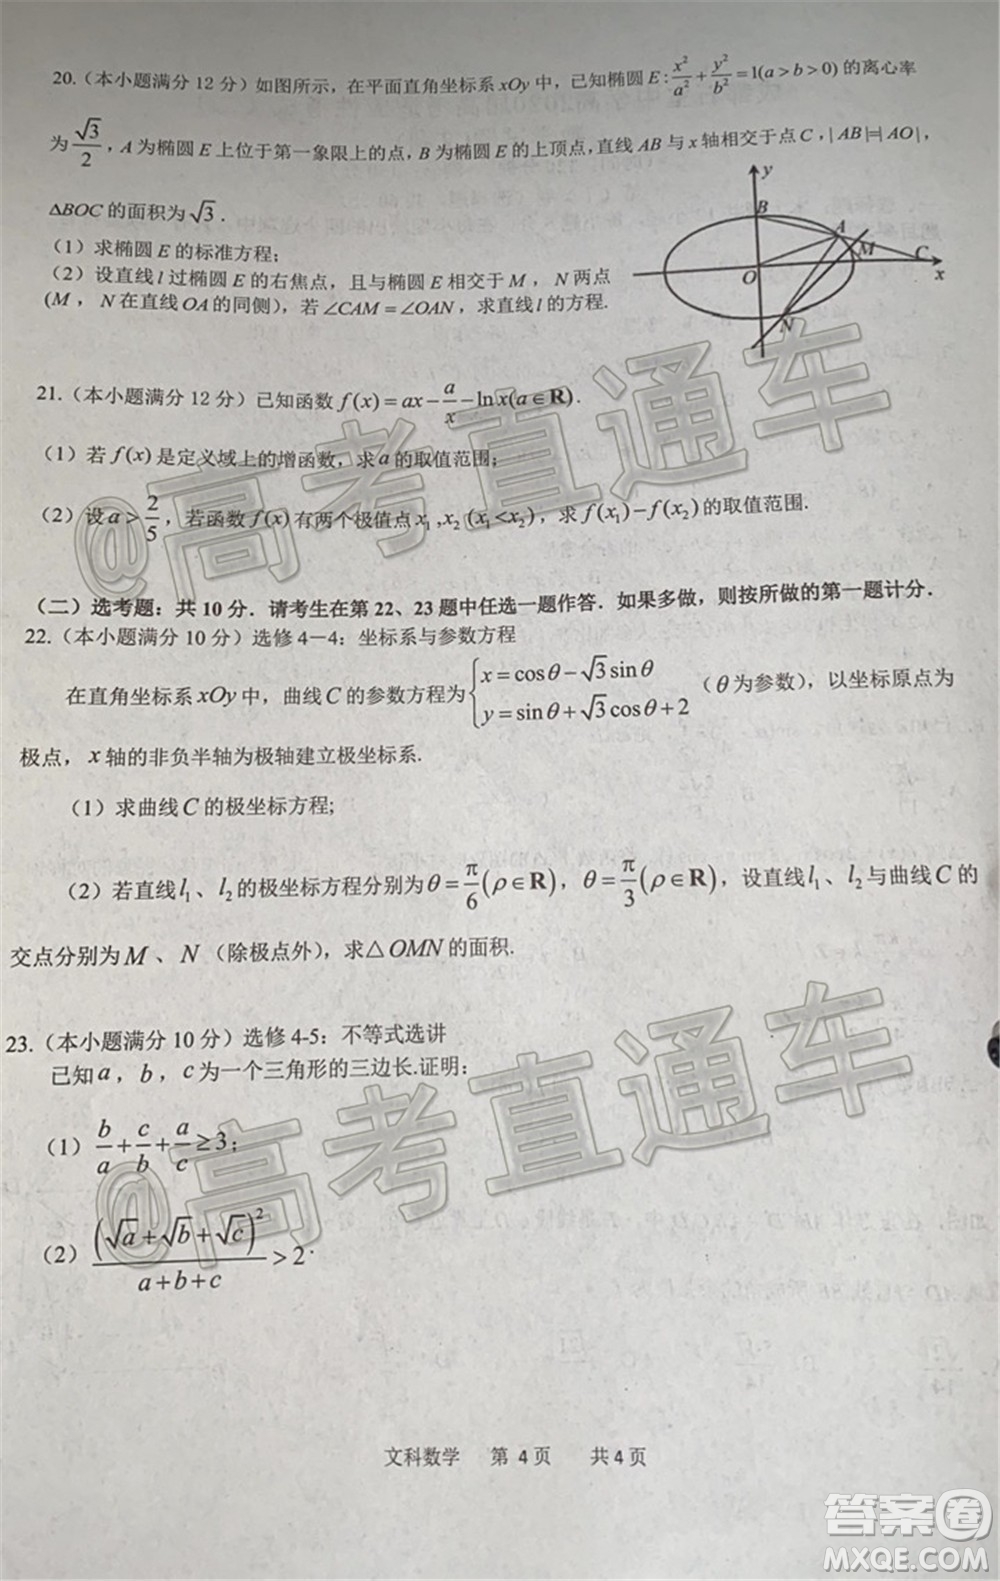 20.（本小题满分 12 分）如图所示，在平面直角坐标系 xOy 中，已知椭圆 E : x²/a² + y²/b² = 1(a > b > 0) 的离心率
为 √3/2 ，A 为椭圆 E 上位于第一象限上的点，B 为椭圆 E 的上顶点，直线 AB 与 x 轴相交于点 C，| AB|=|AO|，
△BOC 的面积为 √3 .
（1）求椭圆 E 的标准方程；
（2）设直线 l 过椭圆 E 的右焦点，且与椭圆 E 相交于 M ， N 两点
(M ， N 在直线 OA 的同侧)，若 ∠CAM = ∠OAN，求直线 l 的方程.
y
B
A
M
C
O
x
N
21.（本小题满分 12 分）已知函数 f(x) = ax − a/x − ln x(a ∈ R) .
（1）若 f(x) 是定义域上的增函数，求 a 的取值范围；
（2）设 a > 2/5 ，若函数 f(x) 有两个极值点 x₁ , x₂ (x₁ < x₂)，求 f(x₁) − f(x₂) 的取值范围.
（二）选考题：共 10 分．请考生在第 22、23 题中任选一题作答．如果多做，则按所做的第一题计分．
22.（本小题满分 10 分）选修 4－4：坐标系与参数方程
在直角坐标系 xOy 中，曲线 C 的参数方程为 { x = cosθ − √3 sinθ
y = sinθ + √3 cosθ + 2 （θ 为参数），以坐标原点为
极点， x 轴的非负半轴为极轴建立极坐标系.
（1）求曲线 C 的极坐标方程;
（2）若直线 l₁、l₂ 的极坐标方程分别为 θ = π/6 (ρ ∈ R)，θ = π/3 (ρ ∈ R)，设直线 l₁、l₂ 与曲线 C 的
交点分别为 M 、 N （除极点外），求 △ OMN 的面积.
23.（本小题满分 10 分）选修 4-5：不等式选讲
已知 a，b，c 为一个三角形的三边长.证明：
（1） b/a + c/b + a/c ≥ 3；
（2） (√a + √b + √c)² / (a + b + c) > 2 .
文科数学 第 4 页 共 4 页
@高考直通车
@高考直通车
答案圈
MXQE.COM